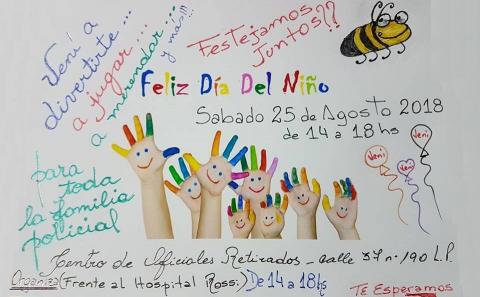 Vení a
divertirte...
a jugar...
a merendar...
y más!!!
Festejamos
Juntos??
Feliz Día Del Niño
Sabado 25 de Agosto 2018
de 14 a 18 hs
para
toda
la familia
policial
Vení
Vení
Vení
Centro de Oficiales Retirados - calle 37 nº 190 L.P.
Organiza (Frente al Hospital Rossi) De 14 a 18 hs
Te Esperamos